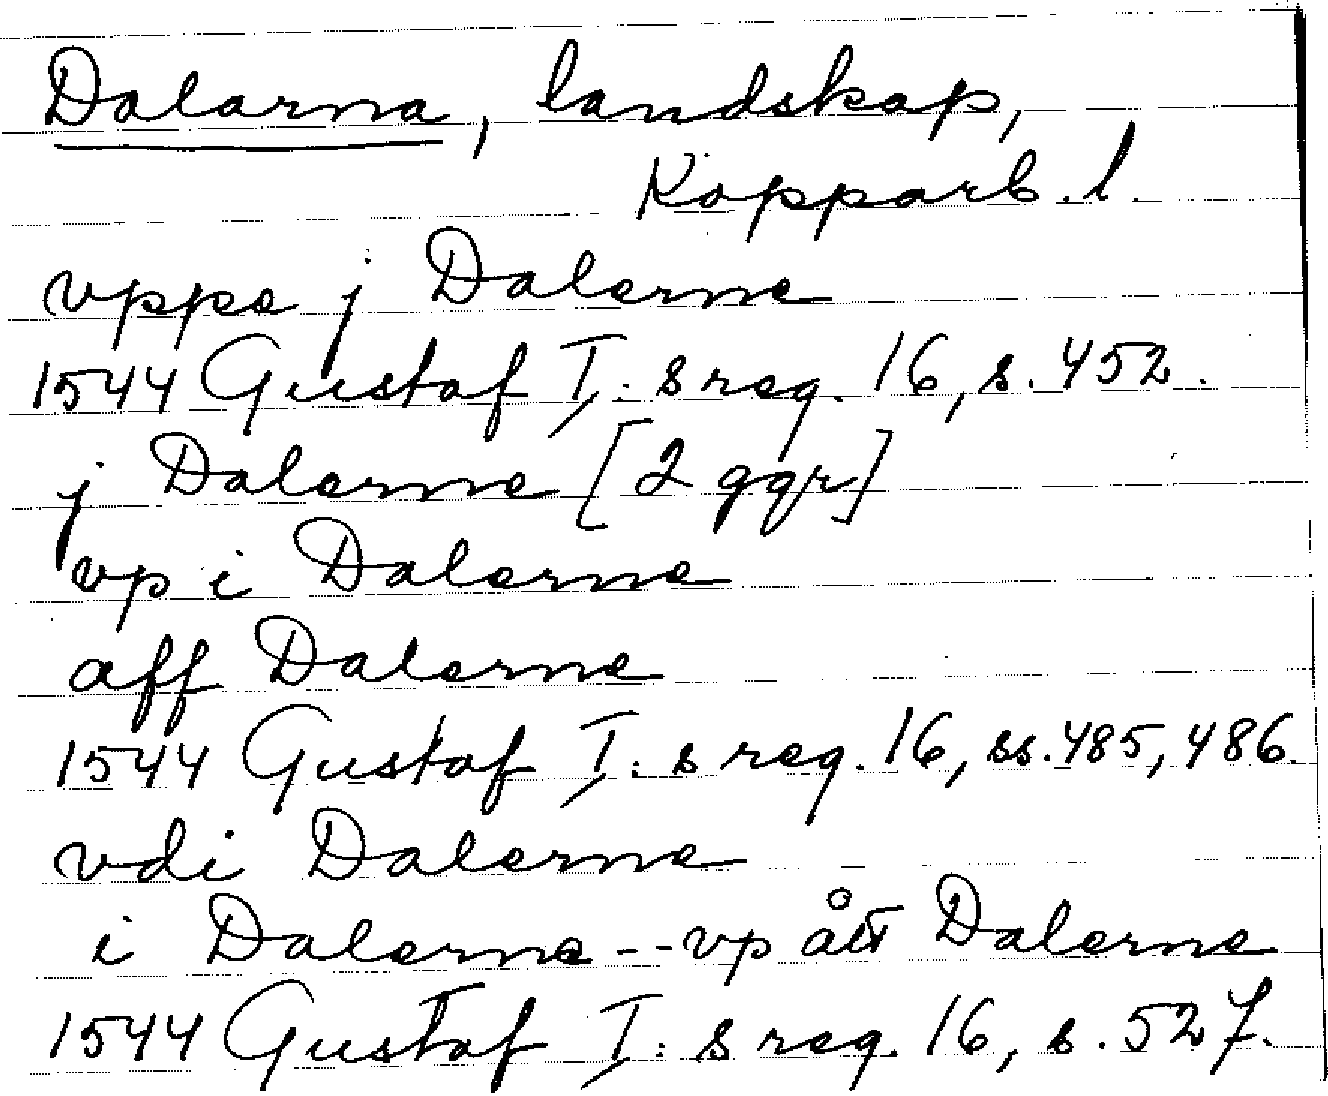 Dalarna, landskap,
Kopparb. l.
vppe j Dalerne
1544 Gustaf I:s reg. 16, s. 452.
j Dalerne [2 ggr]
vp i Dalerne
aff Dalerne
1544 Gustaf I:s reg. 16, ss. 485, 486.
vdi Dalerne
i Dalerne -- vp ått Dalerne
1544 Gustaf I:s reg. 16, s. 527.